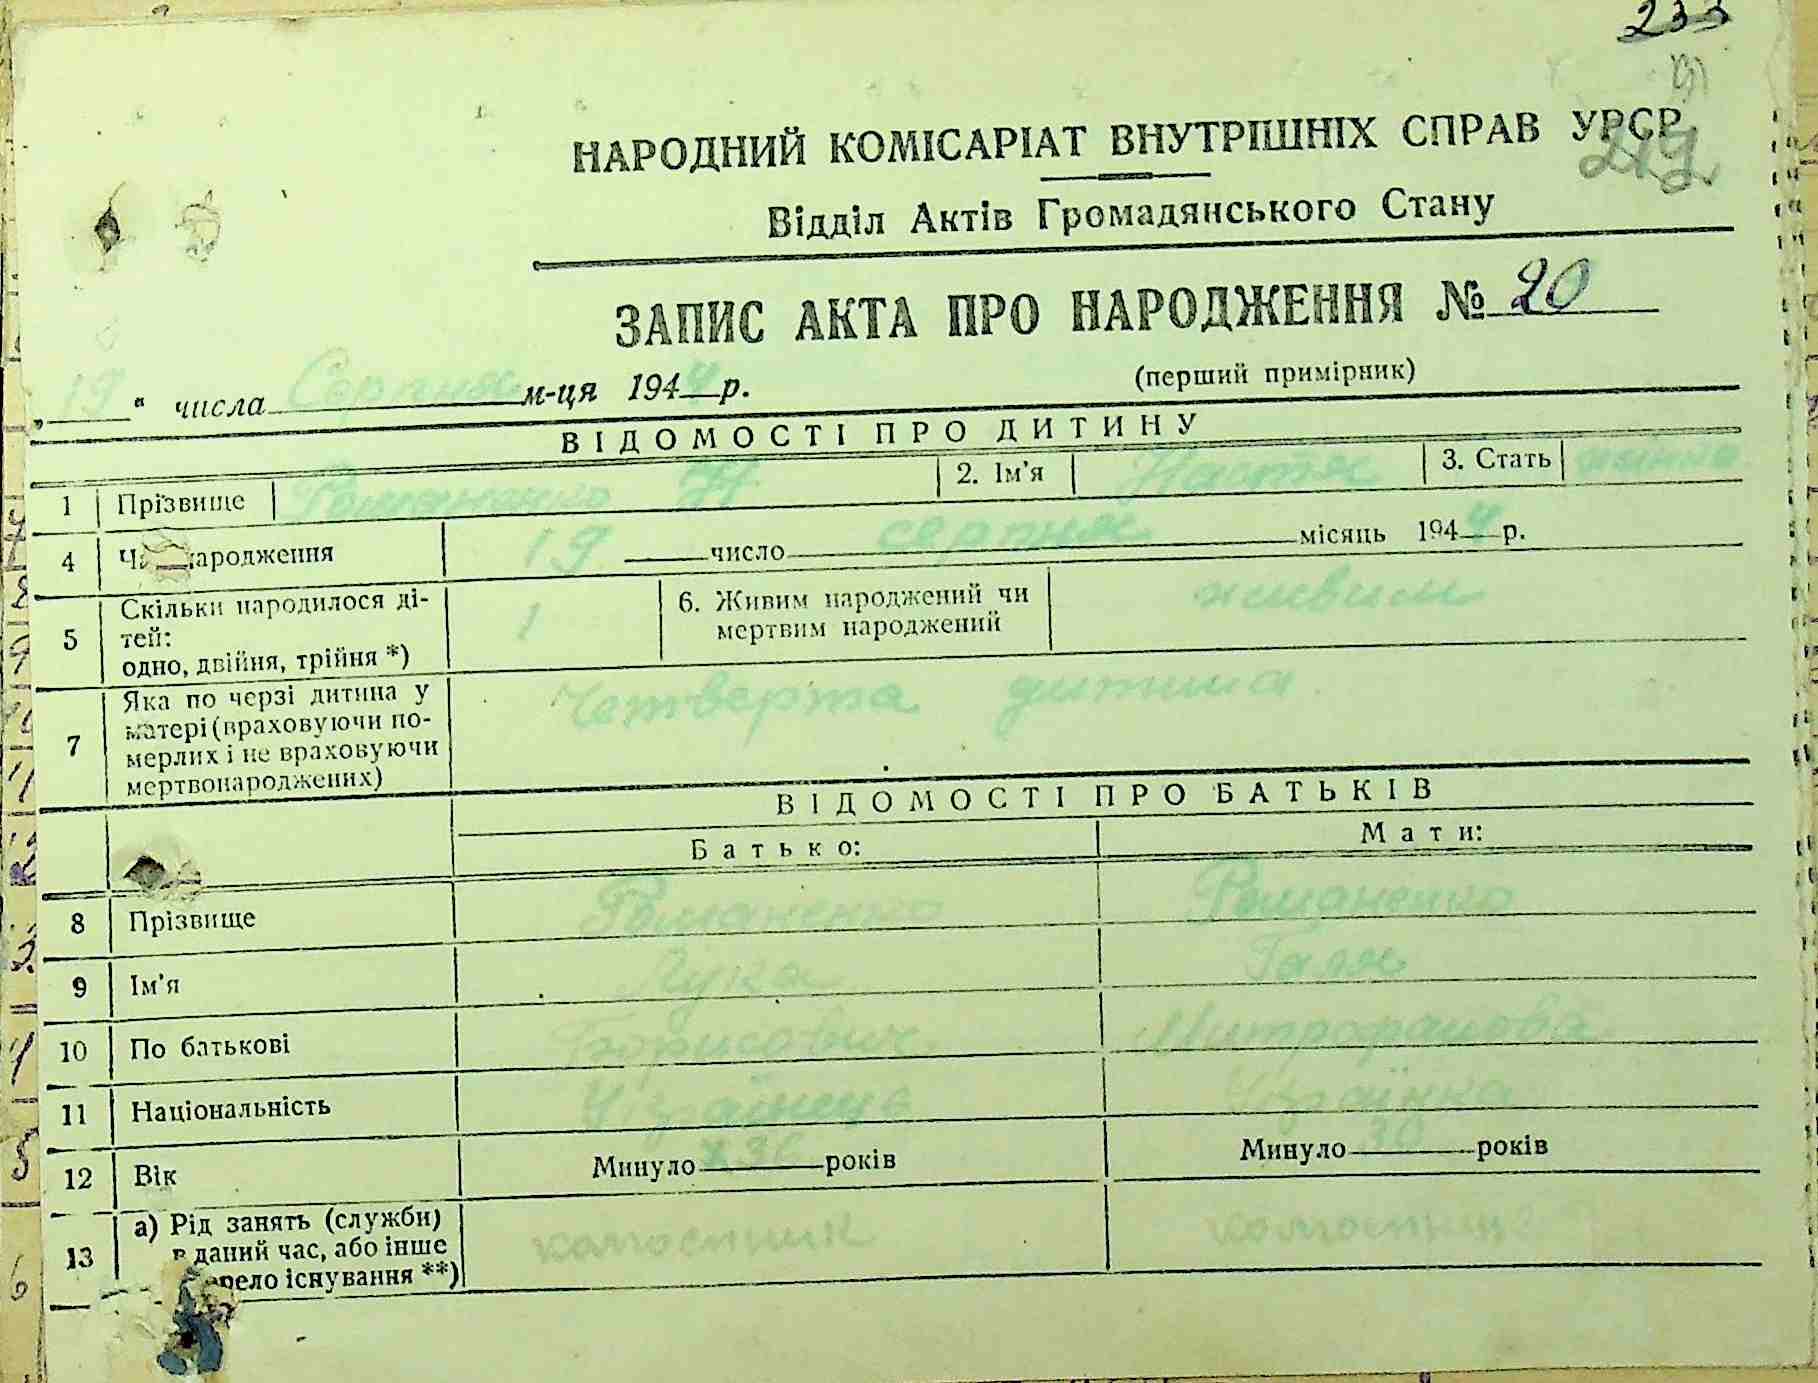 233
НАРОДНИЙ КОМІСАРІАТ ВНУТРІШНІХ СПРАВ УРСР
Відділ Актів Громадянського Стану
ЗАПИС АКТА ПРО НАРОДЖЕННЯ № 20
„ 19 “ числа Серпня м-ця 1944 р. (перший примірник)
ВІДОМОСТІ ПРО ДИТИНУ
1 Прізвище Романенко 2. Ім'я Настя 3. Стать жінка
4 Час народження 19 число серпня місяць 1944 р.
5 Скільки народилося ді-
тей:
одно, двійня, трійня *) 1 6. Живим народжений чи
мертвим народжений живим
7 Яка по черзі дитина у
матері (враховуючи по-
мерлих і не враховуючи
мертвонароджених) Четверта дитина
ВІДОМОСТІ ПРО БАТЬКІВ
Батько: Мати:
8 Прізвище Романенко Романенко
9 Ім'я Лука Галя
10 По батькові Борисович Митрофановa
11 Національність Українець Українка
12 Вік Минуло 36 років Минуло 30 років
13 а) Рід занять (служби)
в даний час, або інше
джерело існування **)